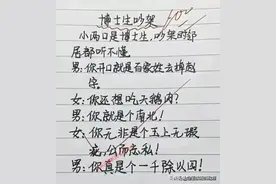 博士生吵架
100
小两口是博士生,吵架时邻
居都听不懂。
男:你开口就是百家姓去掉赵
字。
女:你还想吃天鹅肉?
男:你就是个南北!
女:你无非是个玉上无瑕
疵,公而忘私!
男:你真是个一千除以四!